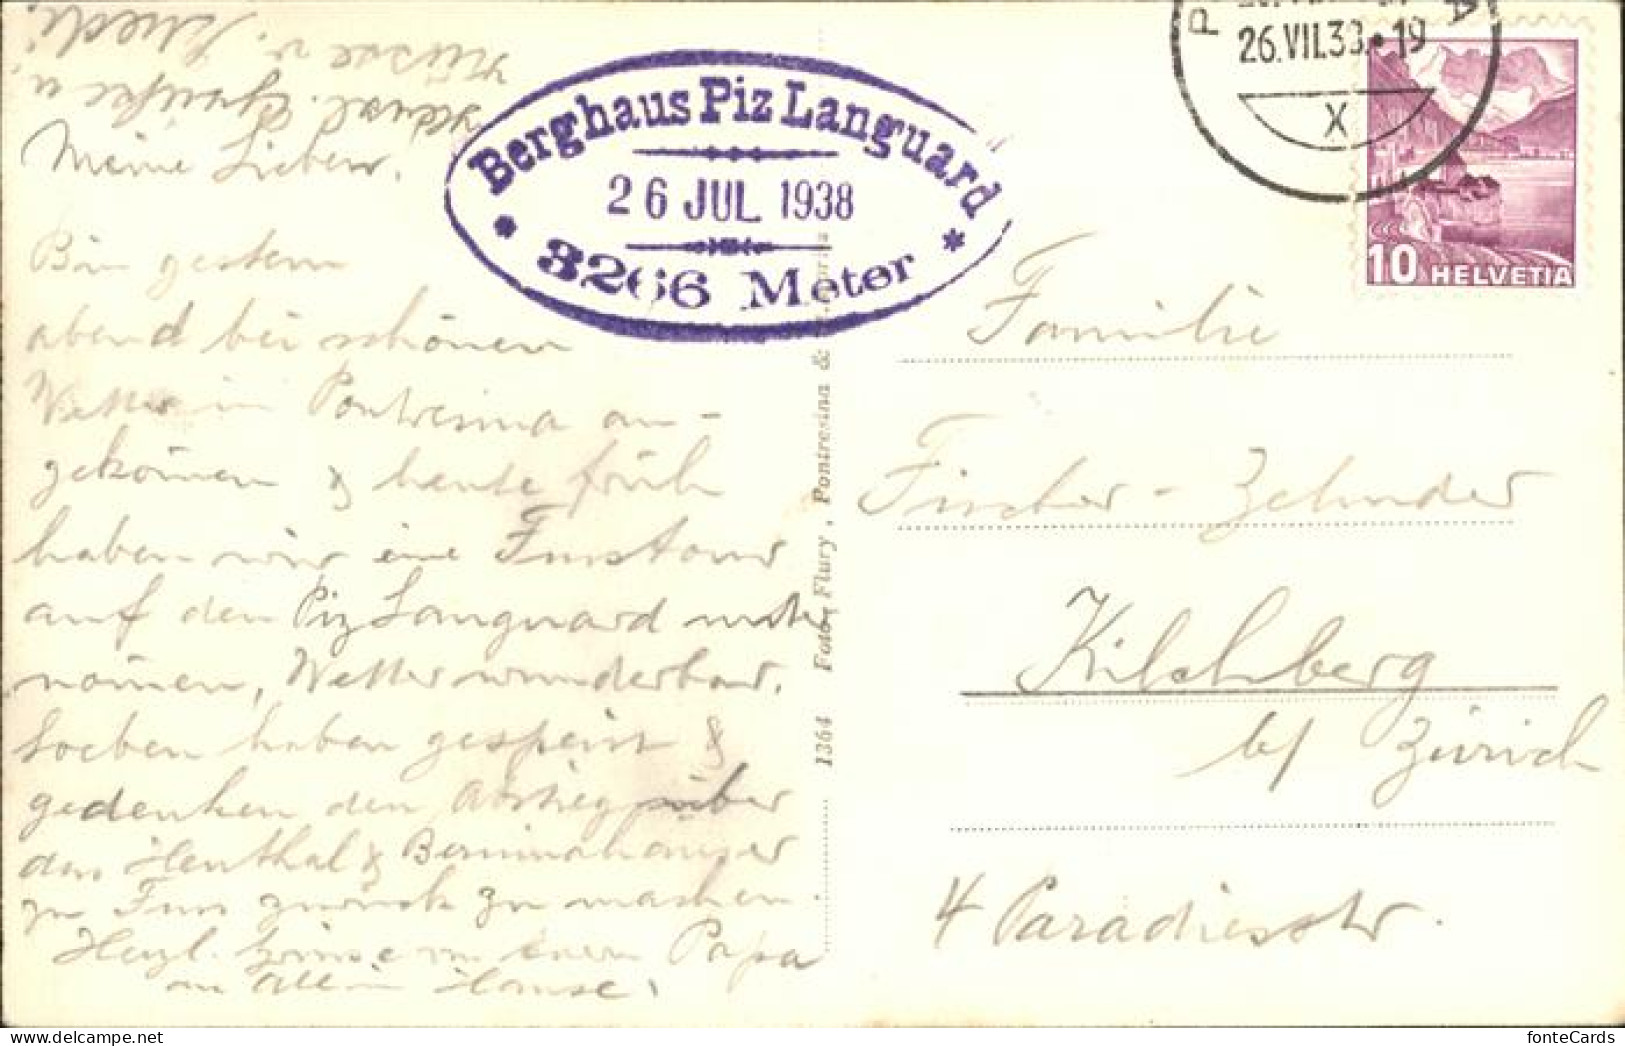 Meine Lieben.
Bin gestern
abend bei schönen
Wetter in Pontresina an-
gekom̄en & heute früh
haben wir eine Fusstour
auf den Piz Languard unter
nom̄en, Wetter wunderbar.
Soeben haben gespeist &
gedenken den Abstieg über
das Heuthal & Berninahäuser
zu Fuss zurück zu machen
Herzl. Grüsse von eurem Papa
an alle im Hause.
herzl. Grüsse u
Küsse v.
Berghaus Piz Languard
26 JUL 1938
* 3266 Meter *
1364 Foto Flury, Pontresina &
26.VII.38.•19
X
10 HELVETIA
Familie
Fischer - Zehnder
Kilchberg
b/ Zürich
4 Paradiesstr.
fonteCards